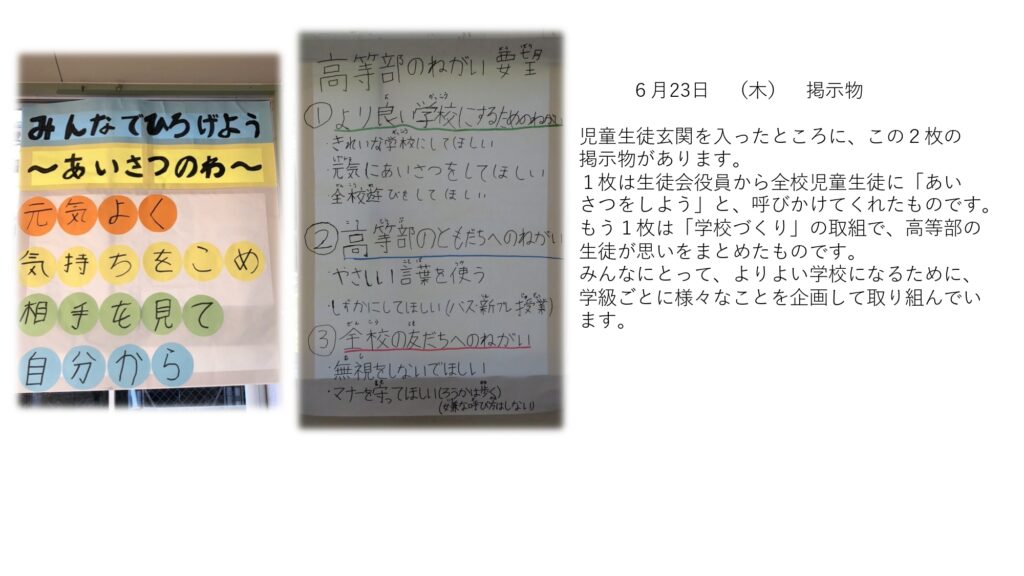 みんなでひろげよう
～あいさつのわ～
元気よく
気持ちをこめ
相手を見て
自分から
高等部のねがい 要望
① より良い学校にするためのねがい
・きれいな学校にしてほしい
・元気にあいさつをしてほしい
全校遊びをしてほしい
② 高等部のともだちへのねがい
・やさしい言葉を使う
・しずかにしてほしい(バス・新カレ授業)
③ 全校の友だちへのねがい
・無視をしないでほしい
・マナーを守ってほしい(ろうかは歩く)
(嫌な呼び方はしない)
６月23日 （木） 掲示物
児童生徒玄関を入ったところに、この２枚の
掲示物があります。
１枚は生徒会役員から全校児童生徒に「あい
さつをしよう」と、呼びかけてくれたものです。
もう１枚は「学校づくり」の取組で、高等部の
生徒が思いをまとめたものです。
みんなにとって、よりよい学校になるために、
学級ごとに様々なことを企画して取り組んでい
ます。